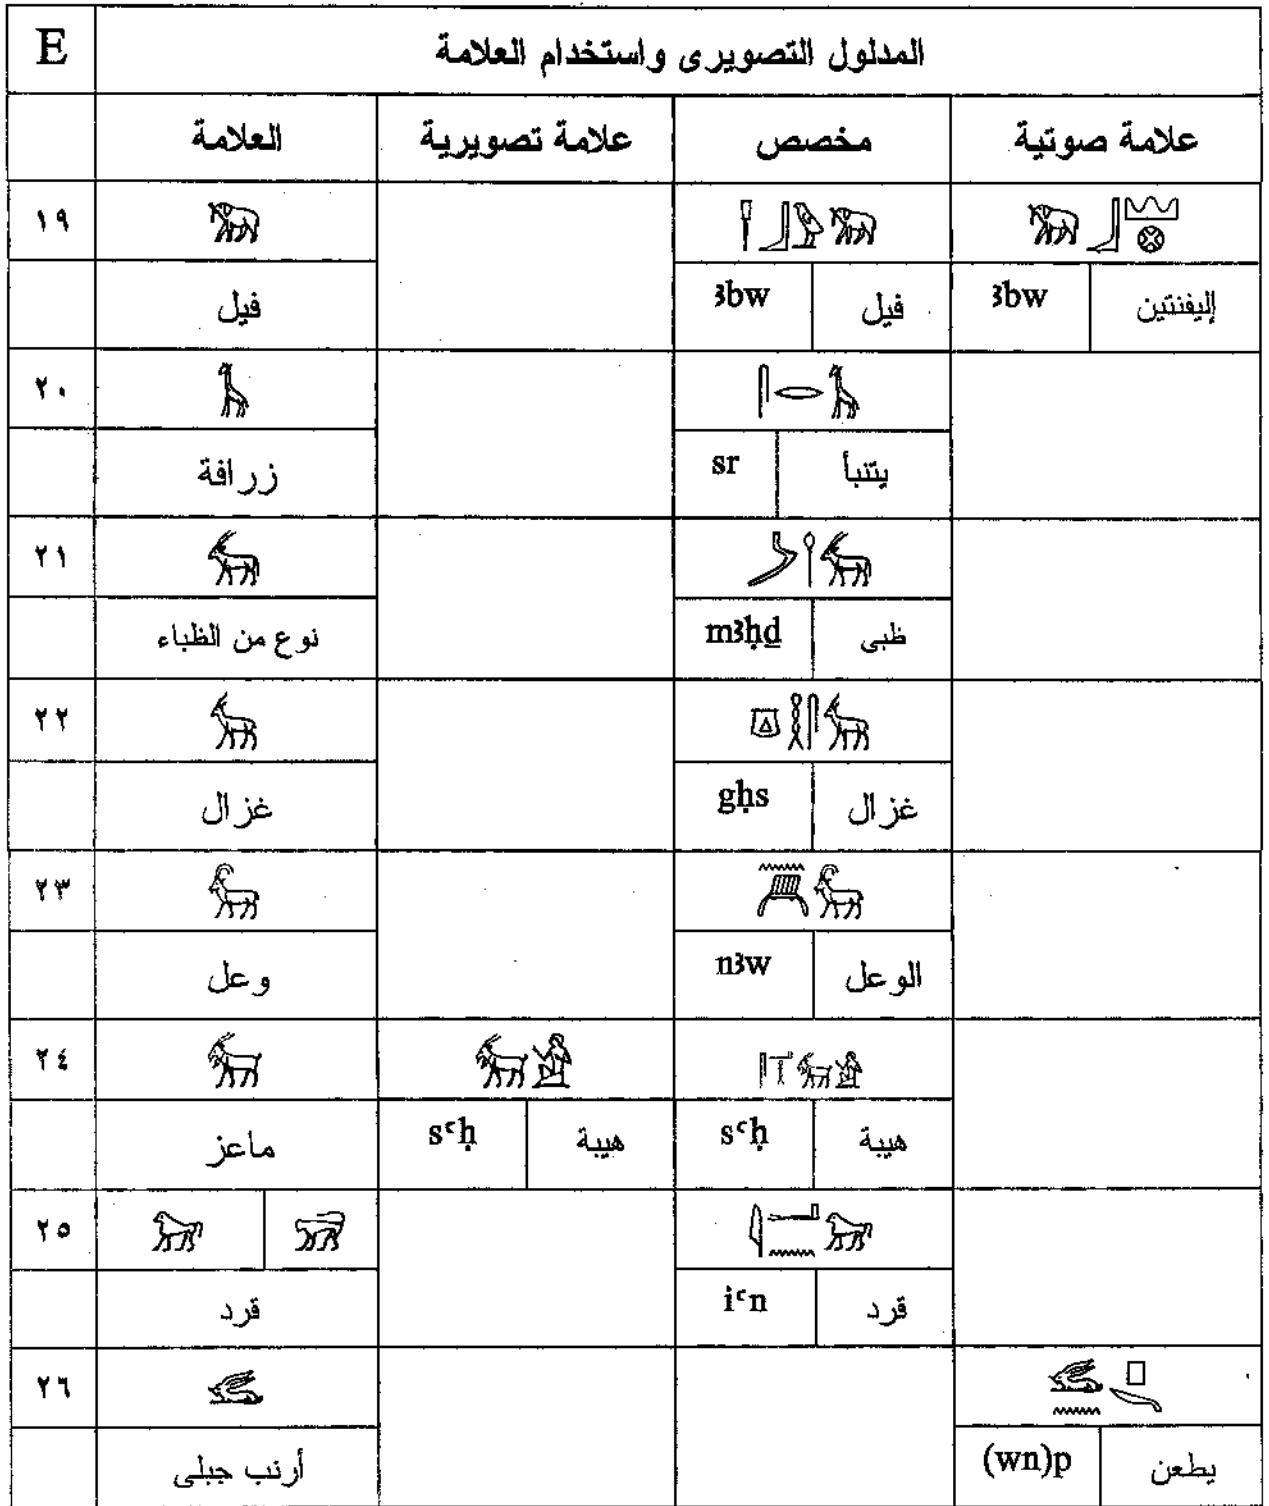 E المدلول التصويرى واستخدام العلامة
العلامة علامة تصويرية مخصص علامة صوتية
١٩ 𓃰 𓍋𓃀𓅱𓃰 𓃰𓃀𓈋𓊖
فيل ꜣbw فيل ꜣbw إليفنتين
٢٠ 𓃱 𓋴𓂋𓃱
زرافة sr يتنبأ
٢١ 𓃲 𓌳𓌉𓃲
نوع من الظباء mꜣḥḏ ظبى
٢٢ 𓃴 𓎼𓎛𓋴𓃴
غزال gḥs غزال
٢٣ 𓃵
وعل nꜣw الوعل
٢٤
ماعز sꜥḥ هيبة sꜥḥ هيبة
٢٥ 𓇋𓂝𓈖
قرد iꜥn قرد
٢٦ 𓃹 𓃹𓈖𓊪𓌪
أرنب جبلى (wn)p يطعن